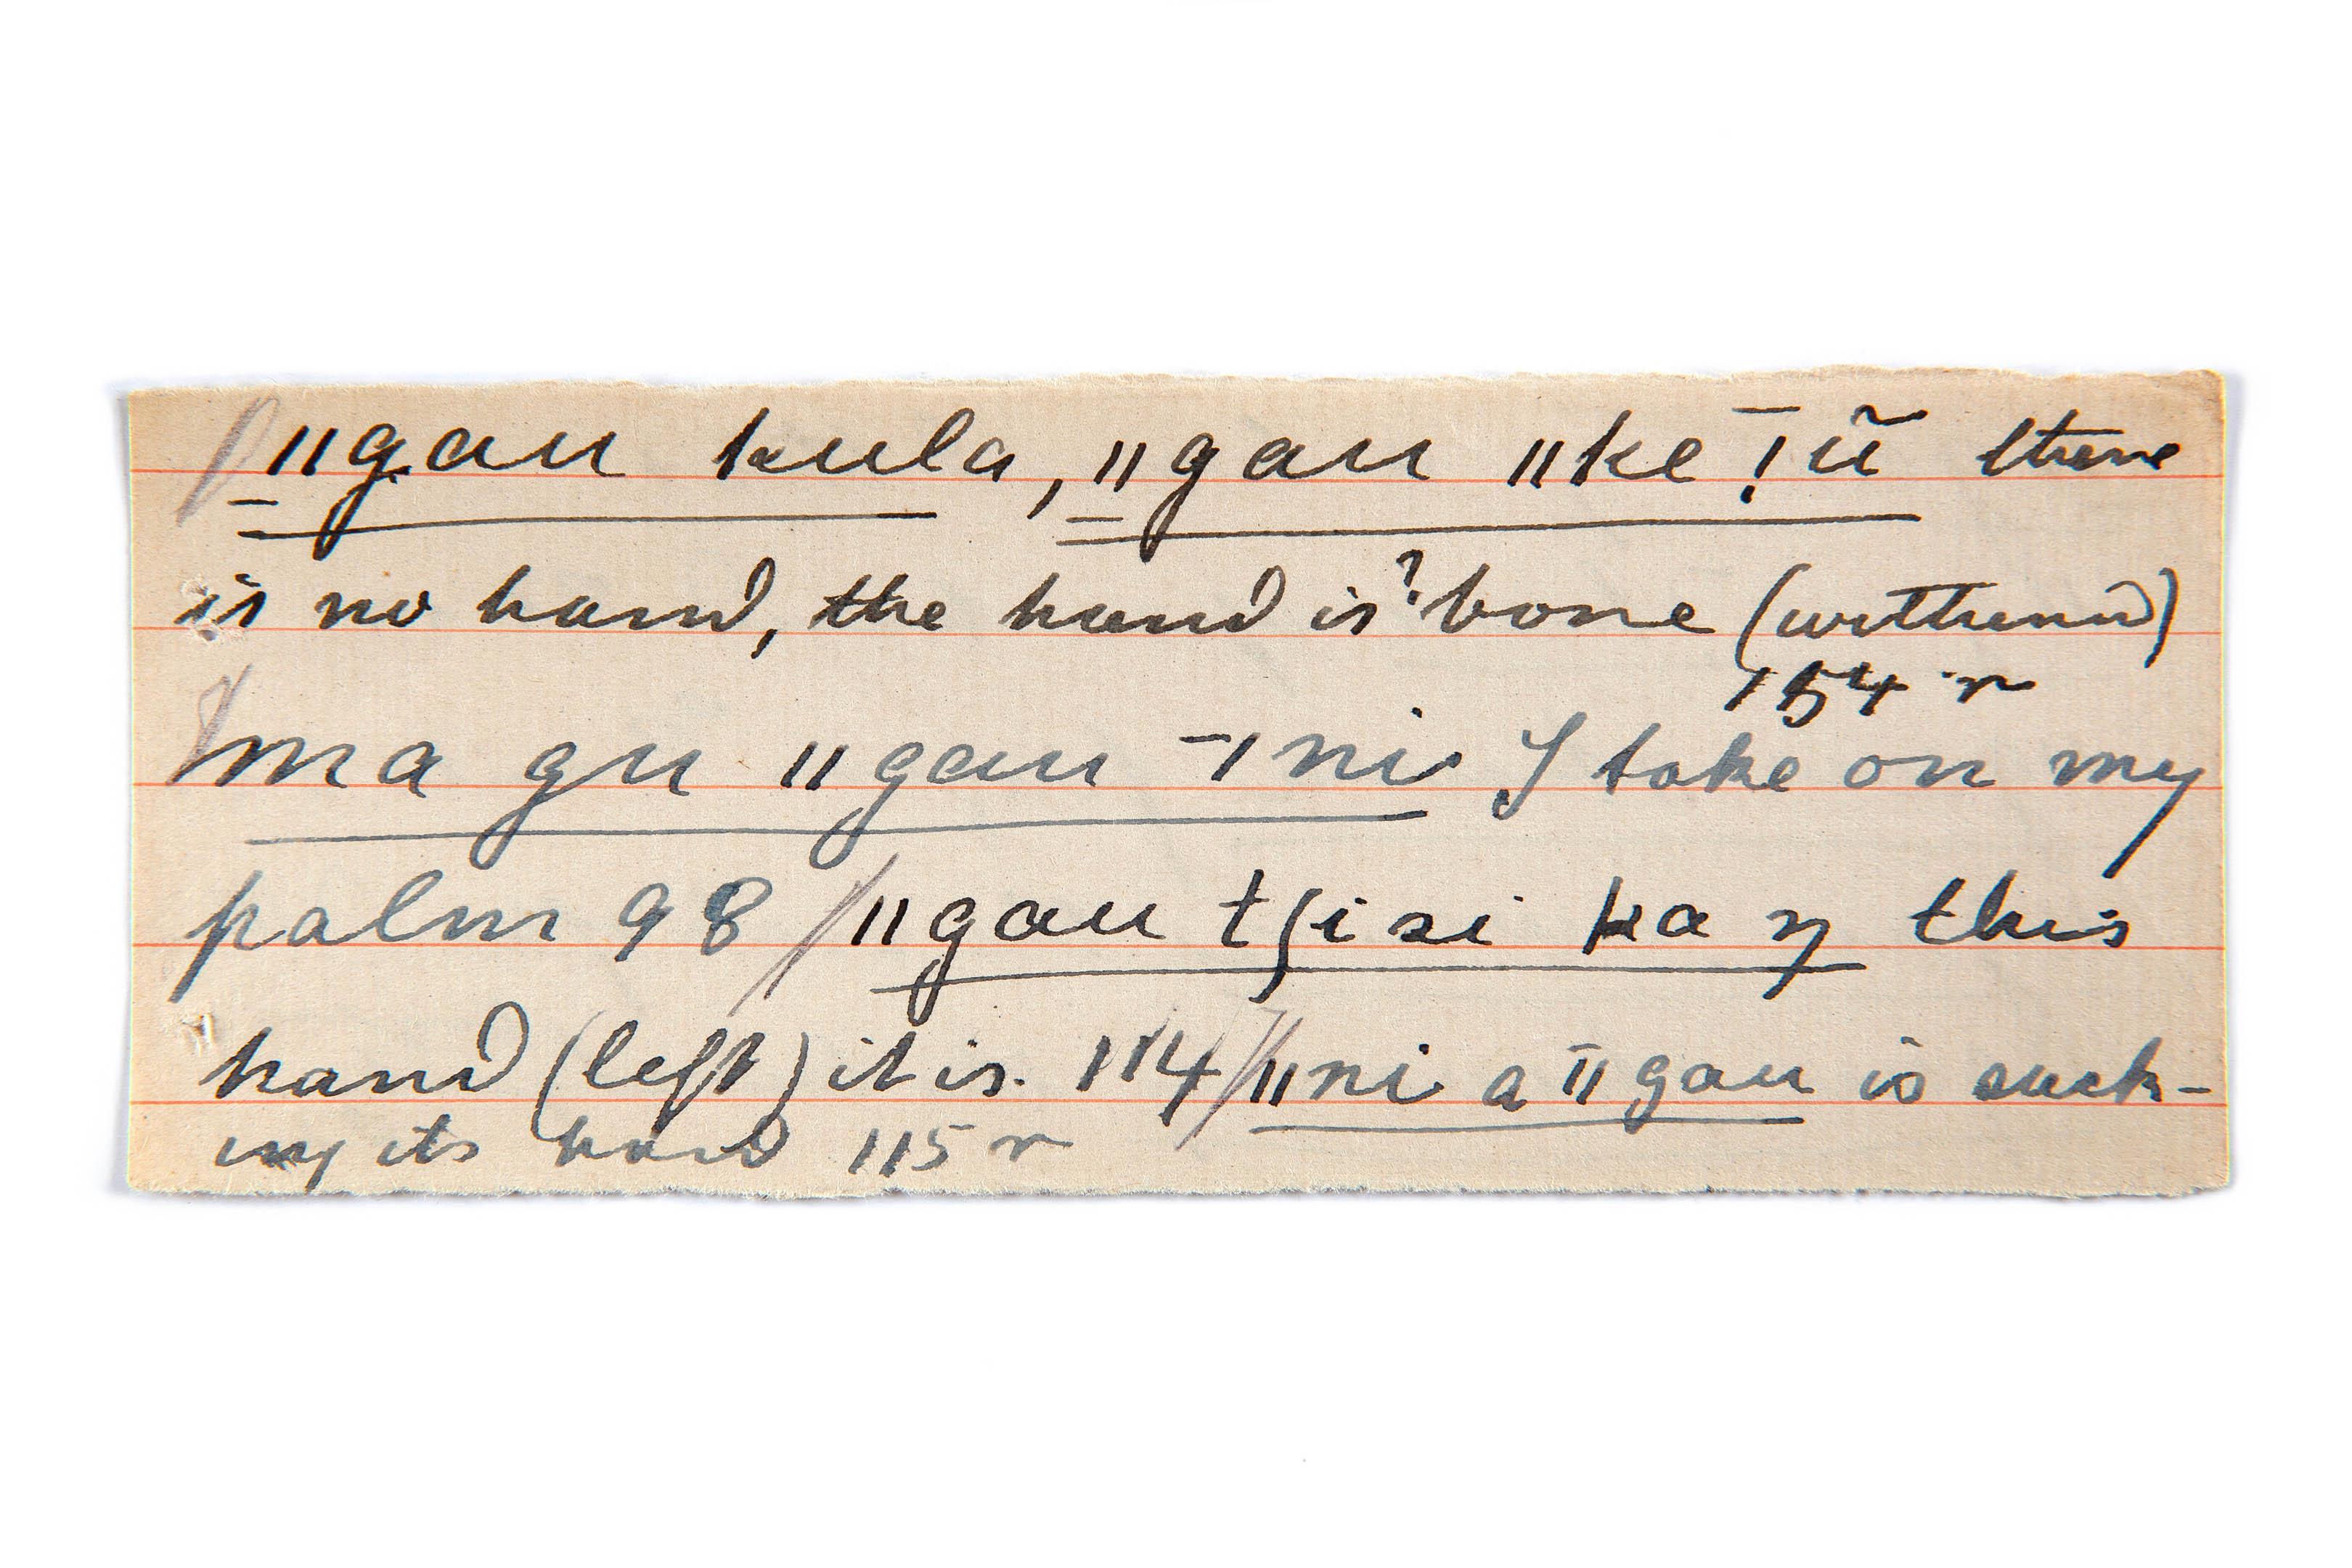 _ǁgau kula, _ǁgau ǁke ¯!ũ there
is no hand, the hand is ? bone (withered)
154 r
ma gu ǁgau ¯ǀni I take on my
palm 98 ǁgau tʃisi ka ŋ this
hand (left) it is. 114 ǁni a ¯ǁgau is suck-
ing its hand 115 r